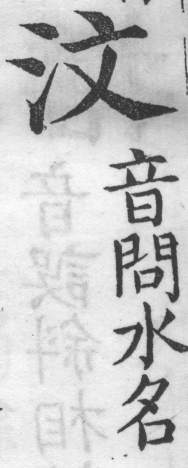 汶
音問水名